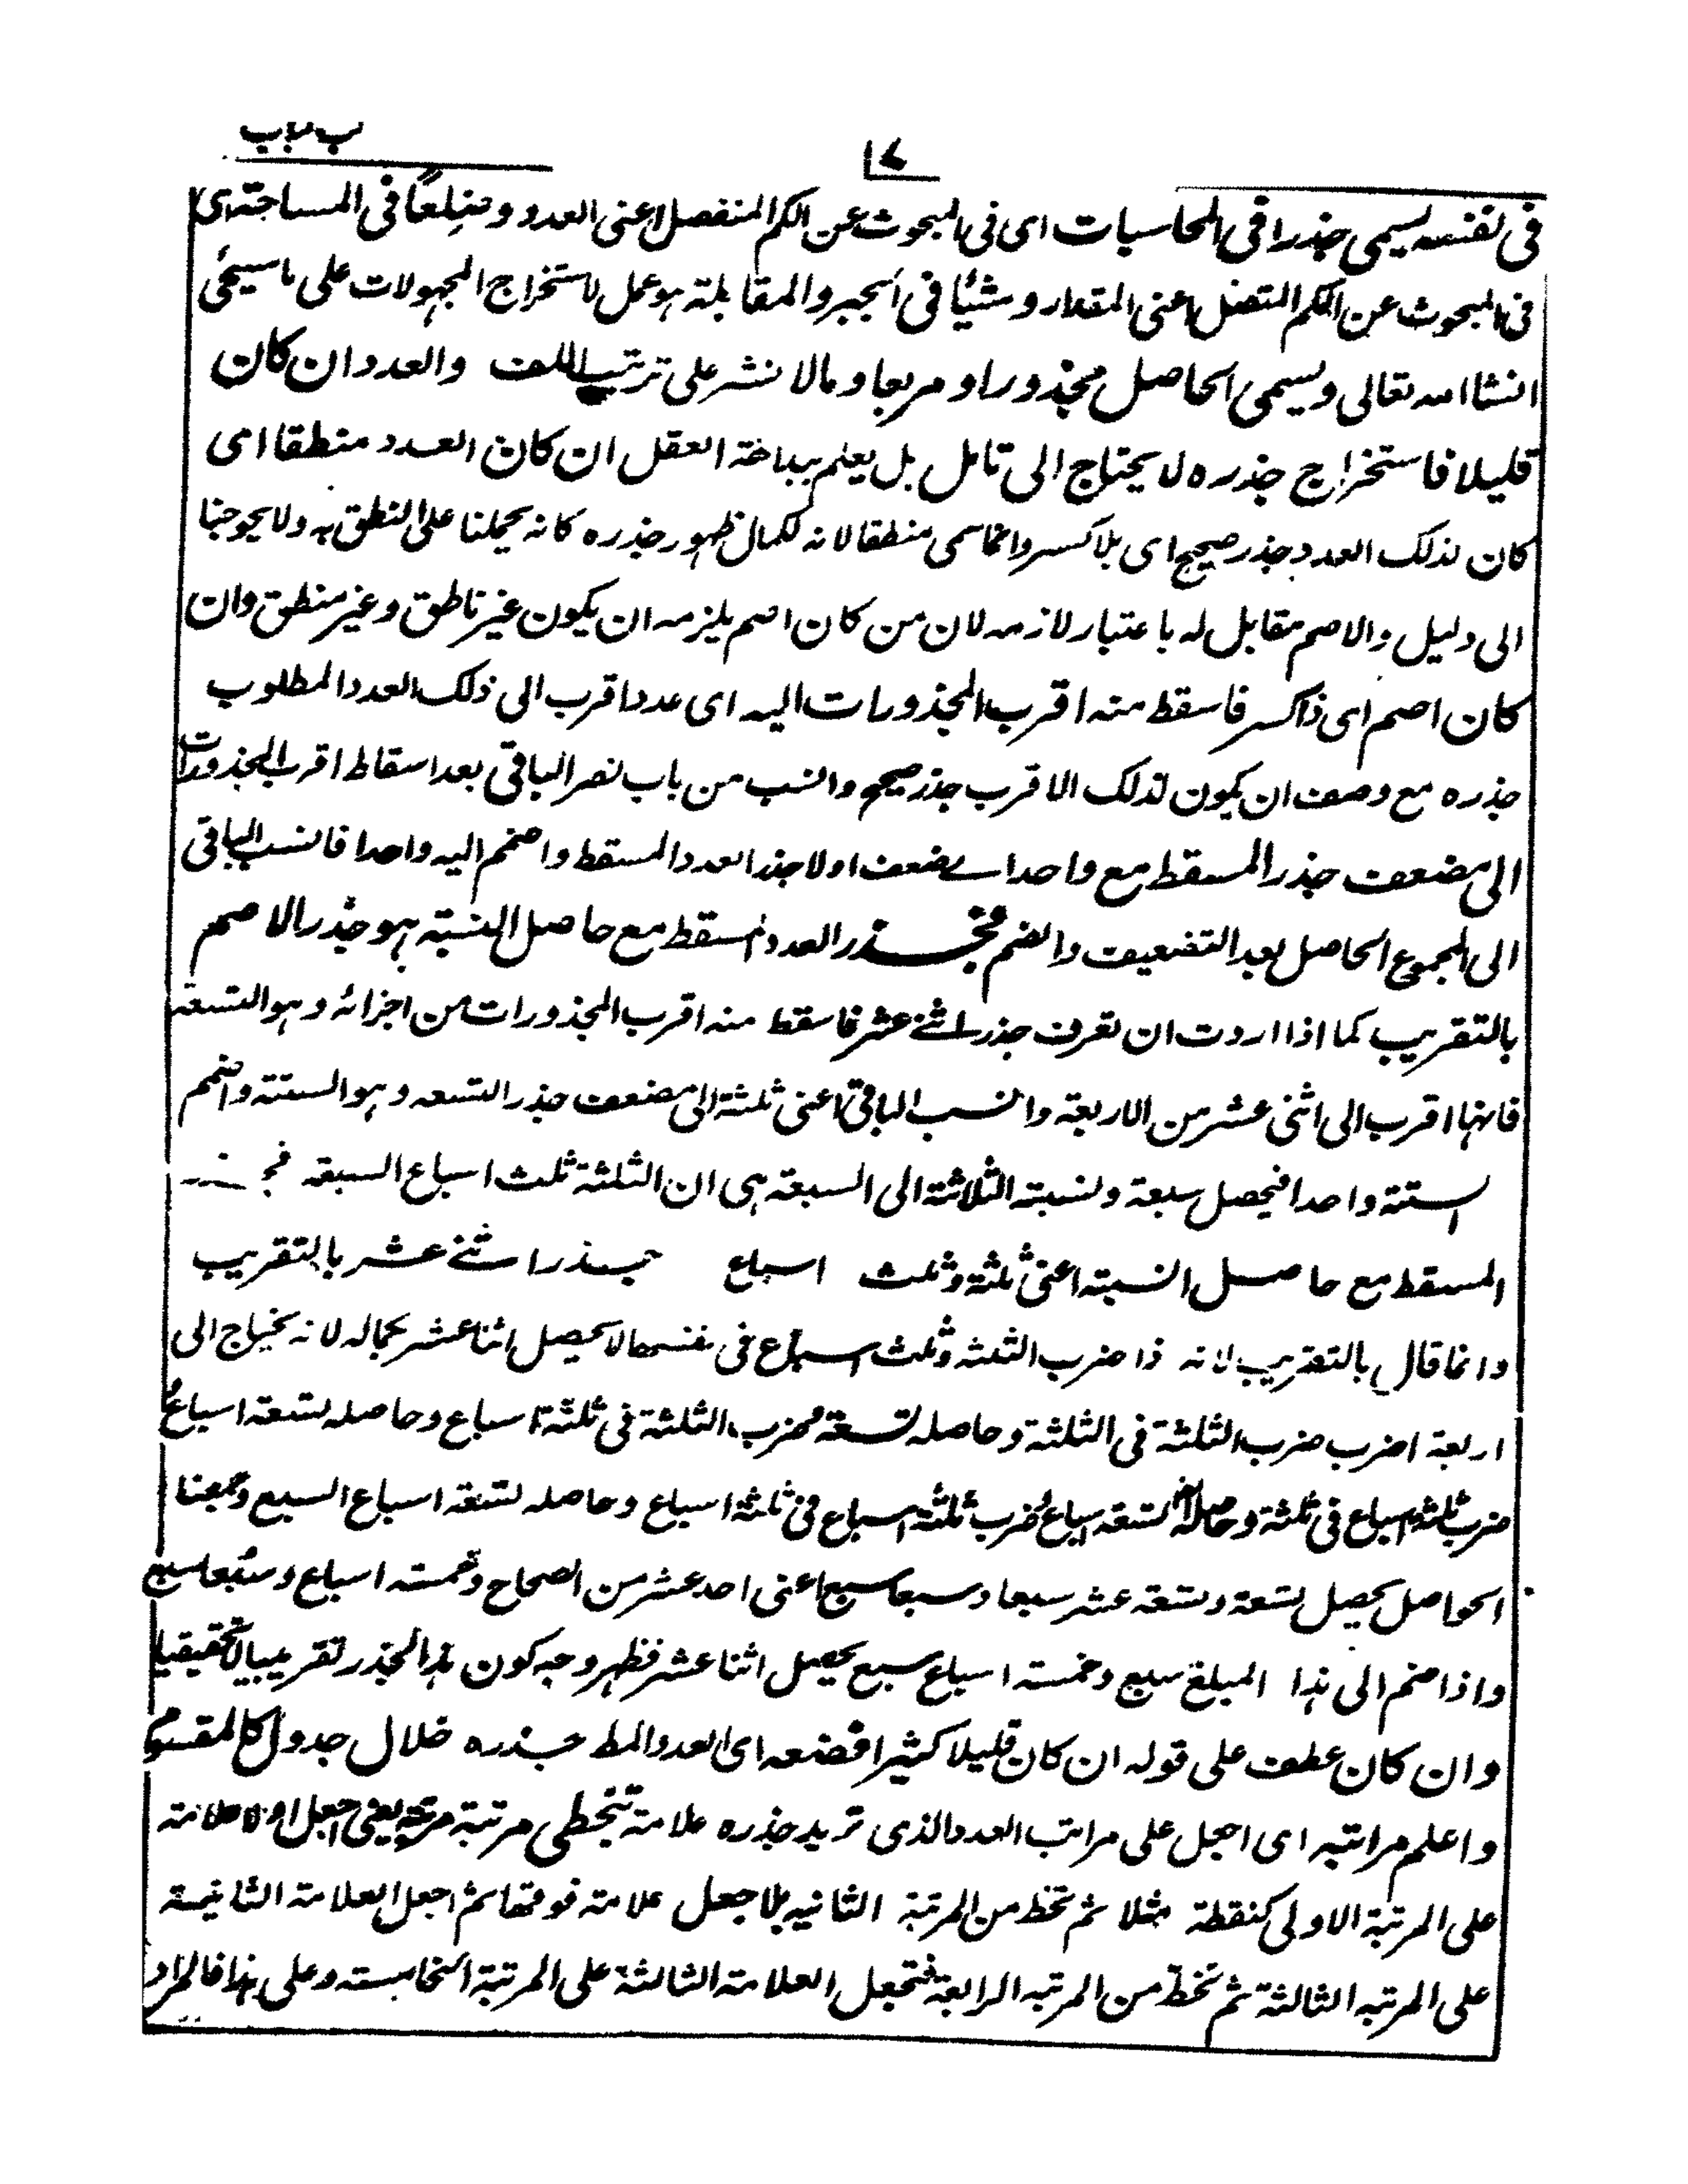 ١٧
فى نفسه يسمى جذرا فى المحاسبات اى فى المبحوث عن الكم المنفصل اعنى العدد وضلعًا فى المساحة اى
فى المبحوث عن الكم المتصل اعنى المقدار و شيئًا فى الجبر والمقابلة هو عمل لاستخراج المجهولات على ما سيجئ
انشاء الله تعالى ويسمى الحاصل مجذورا و مربعا و مالا نشر على ترتيب اللف والعدد ان كان
قليلا فاستخراج جذره لا يحتاج الى تامل بل يعلم ببداهة العقل ان كان العدد منطقا اى
كان لذلك العدد جذر صحيح اى بلا كسر وانما سمى منطقا لانه لكمال ظهور جذره كانه يحملنا على النطق به ولا يحوجنا
الى دليل والاصم مقابل له باعتبار لازمه لان من كان اصم يلزمه ان يكون غير ناطق و غير منطق وان
كان اصم اى ذا كسر فاسقط منه اقرب المجذورات اليه اى عددا قرب الى ذلك العدد المطلوب
جذره مع وصف ان يكون لذلك الاقرب جذر صحيح وانسب من باب نصر الباقى بعد اسقاط اقرب المجذورات
الى مضعف جذر المسقط مع واحد اى ضعف اولا جذر العدد المسقط واضمم اليه واحدا فانسب الباقى
الى المجموع الحاصل بعد التضعيف والضم فجذر العدد المسقط مع حاصل النسبة هو جذر الاصم
بالتقريب كما اذا اردت ان تعرف جذر اثنى عشر فاسقط منه اقرب المجذورات من اجزائه و هو التسعة
فانها اقرب الى اثنى عشر من الاربعة وانسب الباقى اعنى ثلثة الى مضعف جذر التسعه و هو الستة واضمم
الستة واحدا فيحصل سبعة ونسبته الثلاثة الى السبعة هى ان الثلثة ثلث اسباع السبعة فجذر
المسقط مع حاصل النسبة اعنى ثلثة وثلث اسباع جذر اثنى عشر بالتقريب
وانما قال بالتقريب لانه ذا ضرب الثلثه وثلث اسباع فى نفسها لا يحصل اثنا عشر بكماله لانه يحتاج الى
اربعة اضرب ضرب الثلثة فى الثلثة و حاصله تسعة وضرب الثلثة فى ثلثة اسباع و حاصله تسعة اسباع
ضرب ثلثة اسباع فى ثلثة و حاصله تسعة اسباع ضرب ثلثة اسباع فى ثلثة اسباع و حاصله تسعة اسباع السبع وجمعنا
الحواصل يحصل تسعة وتسعة عشر سبعا وسبعا سبع اعنى احد عشر من الصحاح وخمسة اسباع وسبعا سبع
واذا ضم الى هذا المبلغ سبع وخمسة اسباع سبع يحصل اثنا عشر فظهر وجه كون هذا الجذر تقريبيا لا تحقيقيا
وان كان عطف على قوله ان كان قليلا كثيرا فضعه اى العدد المط جذره خلال جدول كالمقسوم
واعلم مراتبه اى اجعل على مراتب العدد الذى تريد جذره علامة تتخطى مرتبة مرتبة يعنى اجعل اولا علامة
على المرتبة الاولى كنقطة مثلا ثم تخط من المرتبة الثانيه بلا جعل علامة فوقها ثم اجعل العلامة الثانية
على المرتبه الثالثة ثم تخط من المرتبه الرابعة فتجعل العلامة الثالثة على المرتبة الخامسة وعلى هذا فالمراد